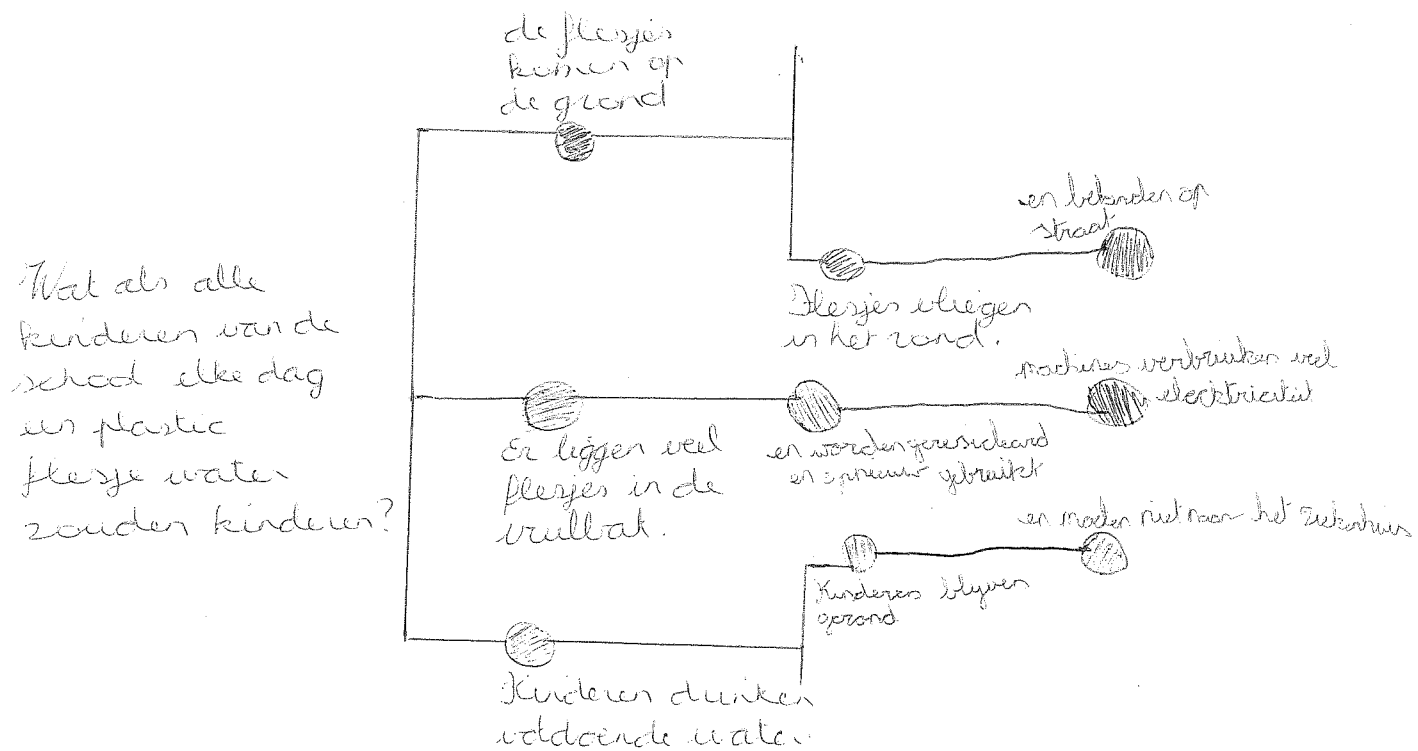 Wat als alle
kinderen van de
school elke dag
een plastic
flesje water
zouden kinderen?
de flesjes
komen op
de grond
Flesjes vliegen
in het rond.
en belanden op
straat
Er liggen veel
flesjes in de
vuilbak.
en worden geresicleard
en opnieuw gebruikt
machines verbruiken veel
elecktriciteit
Kinderen drinken
voldoende water.
Kinderen blijven
gezond
en moeten niet naar het ziekenhuis